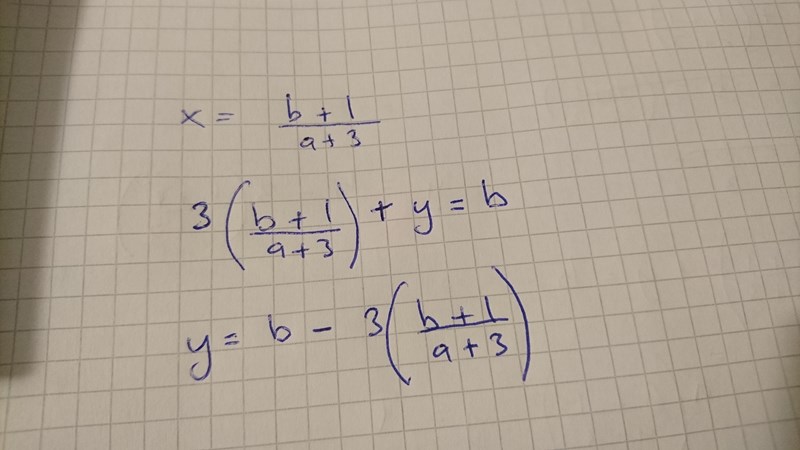 x = \frac{b+1}{a+3}
3\left(\frac{b+1}{a+3}\right) + y = b
y = b - 3\left(\frac{b+1}{a+3}\right)